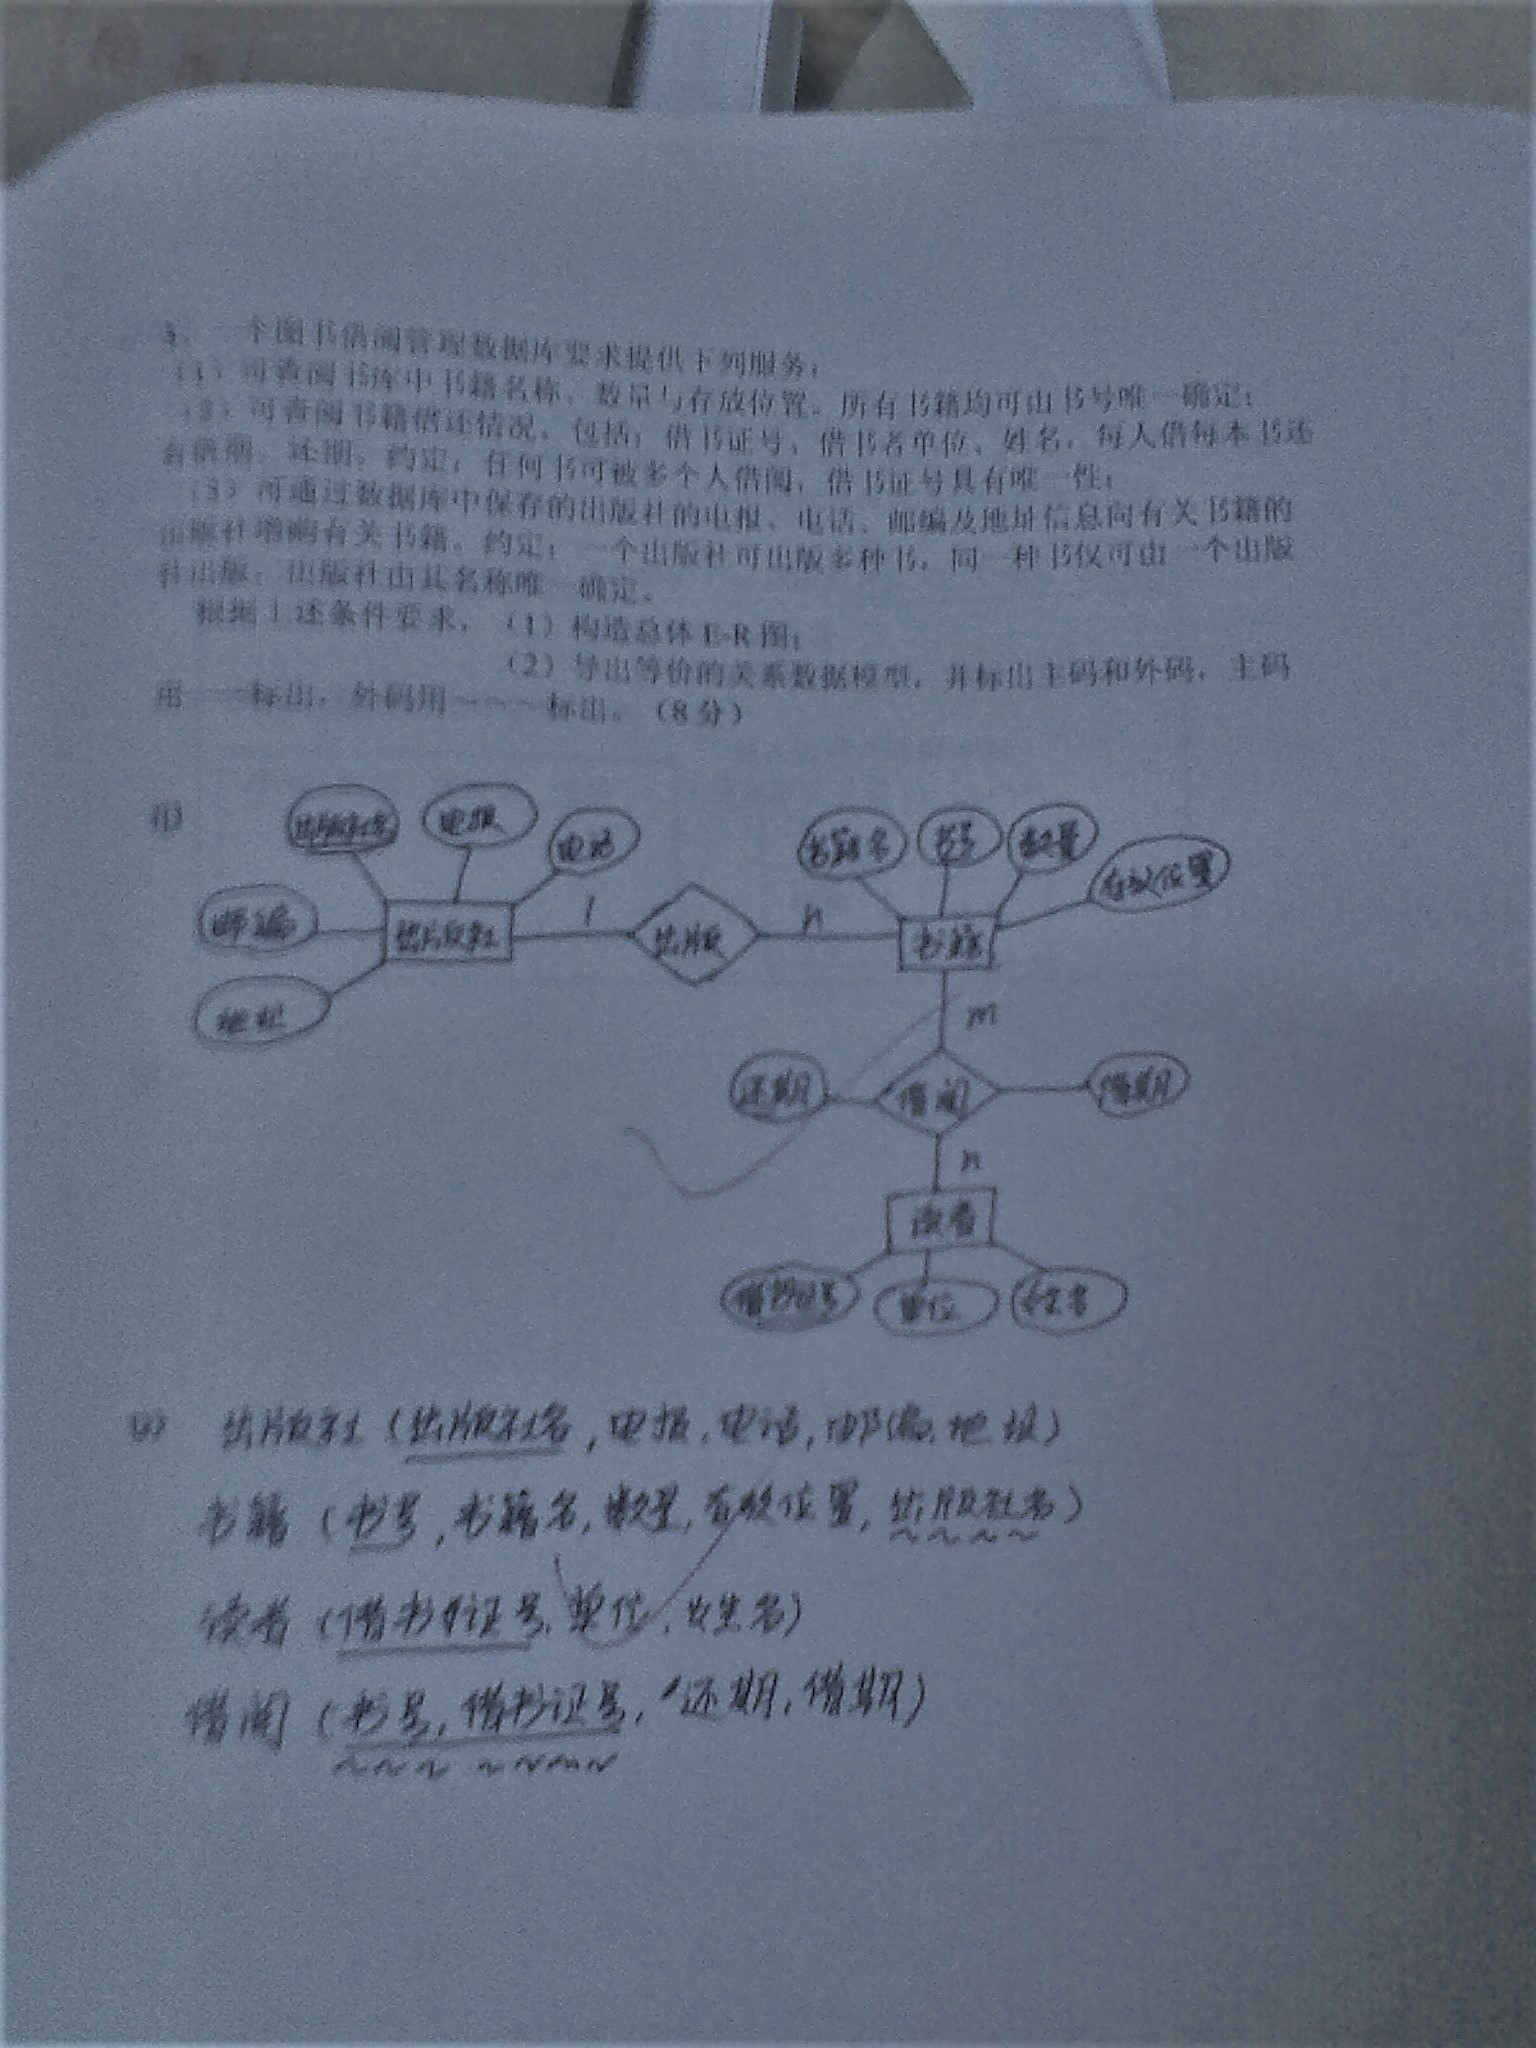 一个图书借阅管理数据库要求提供下列服务：
（1）可查阅书库中书籍名称、数量与存放位置。所有书籍均可由书号唯一确定；
（2）可查阅书籍借还情况，包括：借书证号、借书者单位、姓名，每人借每本书还
有借期、还期。约定：任何书可被多个人借阅，借书证号具有唯一性；
（3）可通过数据库中保存的出版社的电报、电话、邮编及地址信息向有关书籍的
出版社增购有关书籍。约定：一个出版社可出版多种书，同一种书仅可由一个出版
社出版；出版社由其名称唯一确定。
根据上述条件要求，（1）构造总体E-R图；
（2）导出等价的关系数据模型，并标出主码和外码，主码
用——标出，外码用~~~标出。（8分）
(1)
出版社名 电报 电话 书籍名 书号 数量 存放位置
邮编 出版社 1 出版 n 书籍
地址
m
还期 借阅 借期
n
读者
借书证号 单位 姓名
(2) 出版社（出版社名，电报，电话，邮编，地址）
书籍（书号，书籍名，数量，存放位置，出版社名）
读者（借书证号，单位，姓名）
借阅（书号，借书证号，还期，借期）